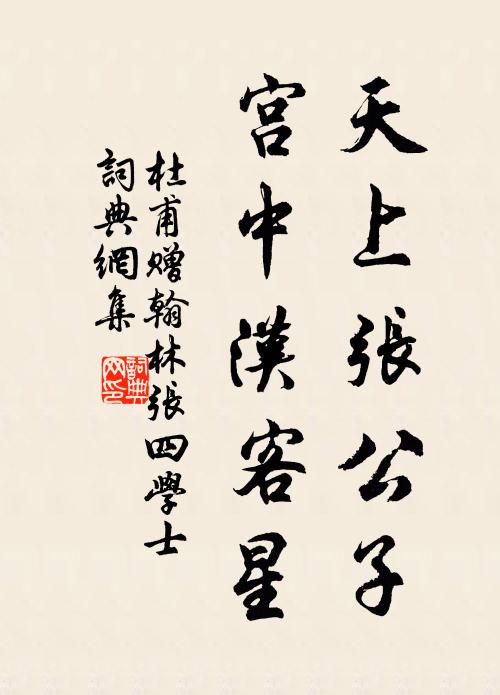 天上張公子
宮中漢客星
杜甫贈翰林張四學士
詞典網集
詞典
网印